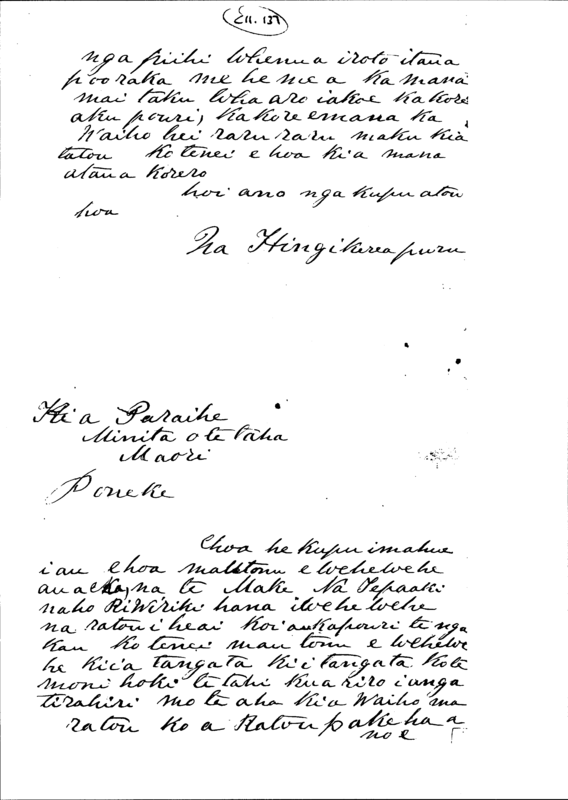 E11. 137
nga piihi whenua iroto itaua
pooraka me he me a ka mana
mai taku wha aro iakoe kakore
aku pouri, kakore emana ka
Waiho hei raru raru maku kia
tatou ko tenei e hoa kia mana
ataua korero
hoi ano nga kupu atou
hoa
Na Hingikereapuru
Ki a Paraihe
Minita o te taha
Maori
Poneke
Ehoa he kupu imahue
iau Ehoa mau tonu e wehewehe
na te Make Na Tepaaki
naho hana iwehe wehe
na ratou i heai koi au kapouri te nga
kau ko tenei mau tonu e wehewe
he kia tangata kiitangata kote
moni hoki te tahi kua riro i anga
tirahiri mo te aha kia Waiho ma
ratou ko a Ratou pakeha a
no e